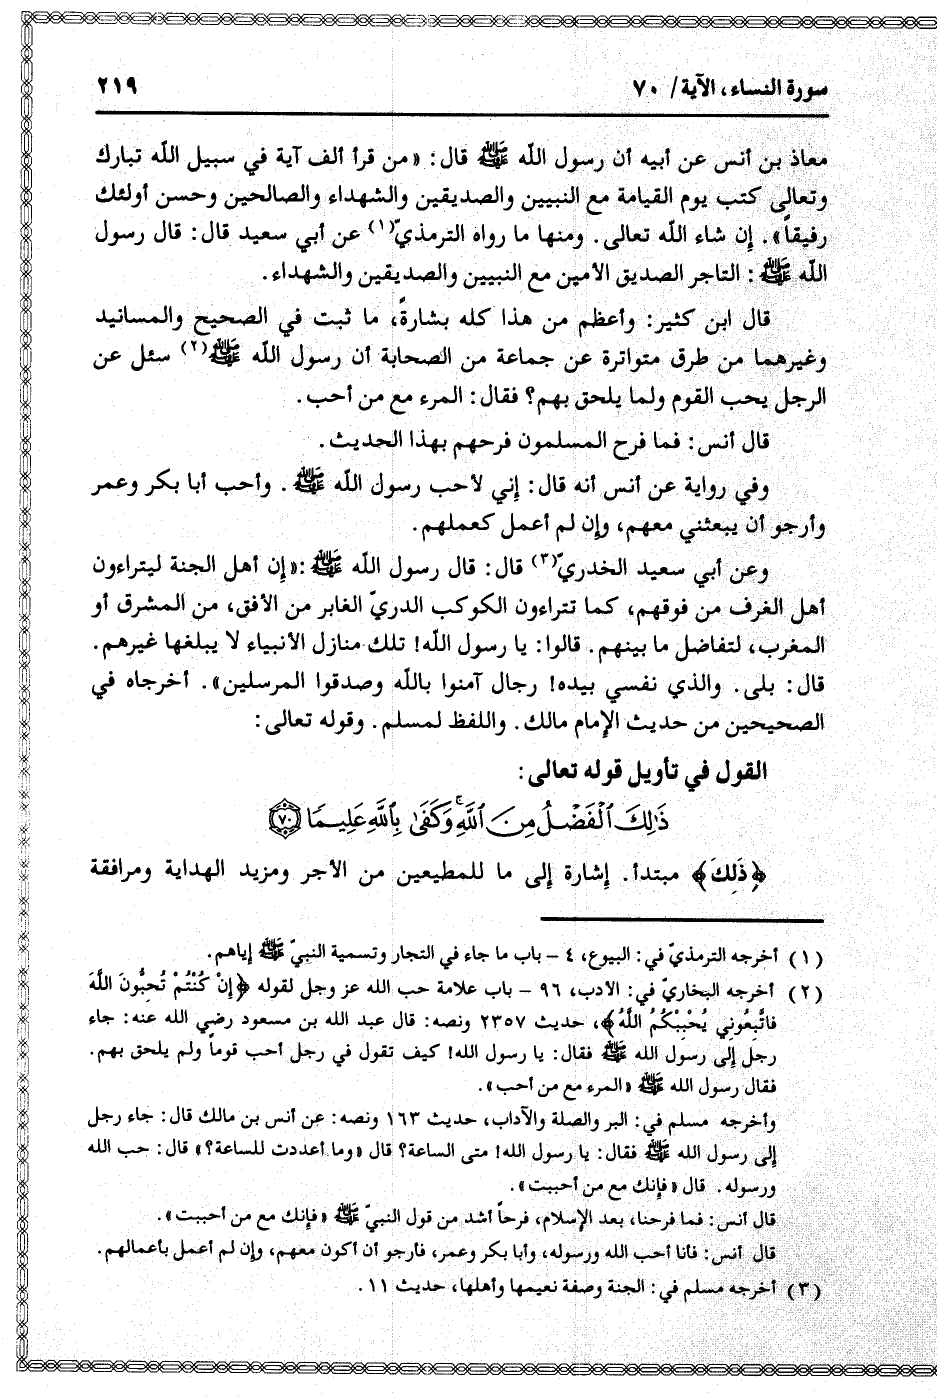 سورة النساء، الآية/ ٧٠
٢١٩
معاذ بن أنس عن أبيه أن رسول الله ﷺ قال: «من قرأ ألف آية في سبيل الله تبارك
وتعالى كتب يوم القيامة مع النبيين والصديقين والشهداء والصالحين وحسن أولئك
رفيقاً». إن شاء الله تعالى. ومنها ما رواه الترمذيّ(١) عن أبي سعيد قال: قال رسول
الله ﷺ: التاجر الصديق الأمين مع النبيين والصديقين والشهداء.
قال ابن كثير: وأعظم من هذا كله بشارةً، ما ثبت في الصحيح والمسانيد
وغيرهما من طرق متواترة عن جماعة من الصحابة أن رسول الله ﷺ(٢) سئل عن
الرجل يحب القوم ولما يلحق بهم؟ فقال: المرء مع من أحب.
قال أنس: فما فرح المسلمون فرحهم بهذا الحديث.
وفي رواية عن أنس أنه قال: إني لأحب رسول الله ﷺ. وأحب أبا بكر وعمر
وأرجو أن يبعثني معهم، وإن لم أعمل كعملهم.
وعن أبي سعيد الخدريّ(٣) قال: قال رسول الله ﷺ: «إن أهل الجنة ليتراءون
أهل الغرف من فوقهم، كما تتراءون الكوكب الدريّ الغابر من الأفق، من المشرق أو
المغرب، لتفاضل ما بينهم. قالوا: يا رسول الله! تلك منازل الأنبياء لا يبلغها غيرهم.
قال: بلى. والذي نفسي بيده! رجال آمنوا بالله وصدقوا المرسلين». أخرجاه في
الصحيحين من حديث الإمام مالك. واللفظ لمسلم. وقوله تعالى:
القول في تأويل قوله تعالى:
ذَٰلِكَ ٱلْفَضْلُ مِنَ ٱللَّهِ ۚ وَكَفَىٰ بِٱللَّهِ عَلِيمًا ﴿٧٠﴾
﴿ذَلِكَ﴾ مبتدأ. إشارة إلى ما للمطيعين من الأجر ومزيد الهداية ومرافقة
(١) أخرجه الترمذيّ في: البيوع، ٤ - باب ما جاء في التجار وتسمية النبيّ ﷺ إياهم.
(٢) أخرجه البخاريّ في: الأدب، ٩٦ - باب علامة حب الله عز وجل لقوله ﴿إِنْ كُنْتُمْ تُحِبُّونَ اللَّهَ
فَاتَّبِعُونِي يُحْبِبْكُمُ اللَّهُ﴾، حديث ٢٣٥٧ ونصه: قال عبد الله بن مسعود رضي الله عنه: جاء
رجل إلى رسول الله ﷺ فقال: يا رسول الله! كيف تقول في رجل أحب قوماً ولم يلحق بهم.
فقال رسول الله ﷺ «المرء مع من أحب».
وأخرجه مسلم في: البر والصلة والآداب، حديث ١٦٣ ونصه: عن أنس بن مالك قال: جاء رجل
إلى رسول الله ﷺ فقال: يا رسول الله! متى الساعة؟ قال «وما أعددت للساعة؟» قال: حب الله
ورسوله. قال «فإنك مع من أحببت».
قال أنس: فما فرحنا، بعد الإسلام، فرحاً أشد من قول النبيّ ﷺ «فإنك مع من أحببت».
قال أنس: فأنا أحب الله ورسوله، وأبا بكر وعمر، فأرجو أن أكون معهم، وإن لم أعمل بأعمالهم.
(٣) أخرجه مسلم في: الجنة وصفة نعيمها وأهلها، حديث ١١.